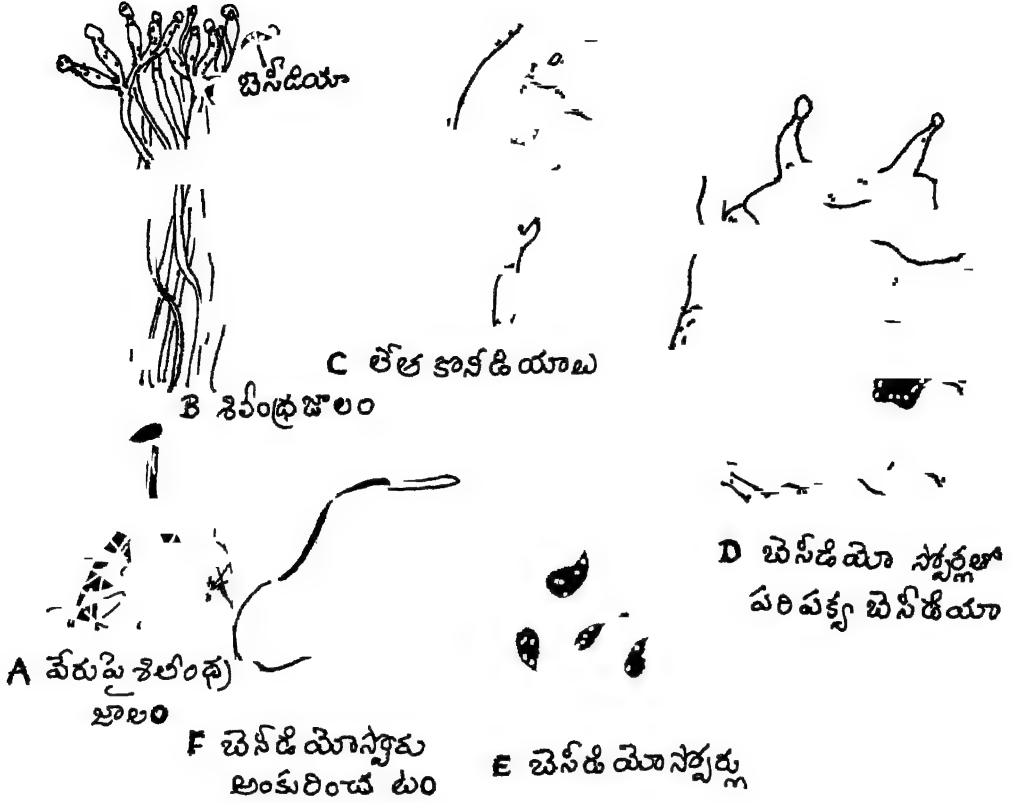 బెసీడియా
C లేత కొనీడియాలు
B శిలీంధ్రజాలం
D బెసీడియో స్పోర్లతో
పరిపక్వ బెసీడియా
A వేరుపై శిలీంధ్ర
జాలం
F బెసీడియోస్పొరు
అంకురించుటం
E బెసీడియోస్పోర్లు